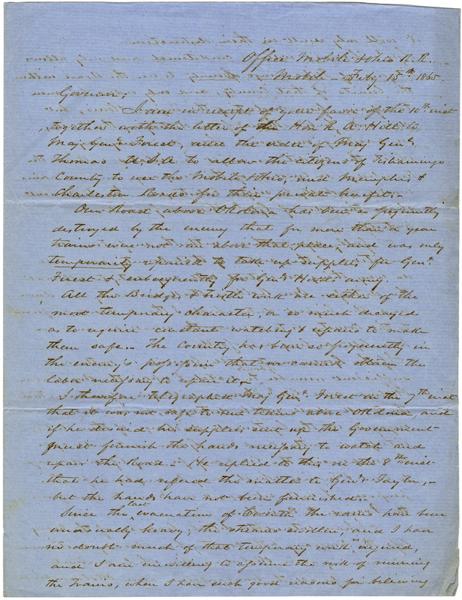 Office Mobile & Ohio R.R.
Mobile Feby 15th 1865
Governor,
I am in receipt of your favor of the 10th inst
together with the letter of the Hon R. A. Hill to
Maj Genl Forest, and the order of Maj Genl
to allow the citizens of Tishomingo
County to use the Mobile & Ohio, and Memphis &
Charleston Roads for their private benefit.
Our Road above Okolona has been so frequently
destroyed by the enemy that for more than a year
trains were not run above that place, and was only
temporarily repaired to take up supplies for Genl
Forest & subsequently for Genl Hood's army.
All the Bridges & trestle work are either of the
most temporary character, or so much decayed
as to require constant watching & repairs to make
them safe. The Country has been so frequently in
the enemy's possession that we cannot obtain the
labor necessary to repair it.
I therefore telegraphed Maj Genl Forest on the 7th inst
that it was not safe to run trains above Okolona, and
if he desired his supplies sent up the Government
must furnish the hands necessary to watch and
repair the Road. He replied to this on the 8th inst
that he had referred the matter to Genl Taylor,
but the hands have not been furnished.
Since the late evacuation of Corinth the rains have been
unusually heavy, the streams swollen, and I have
no doubt much of that temporary work injured,
and I am unwilling to assume the risk of running
the trains, when I have such good reasons for believing